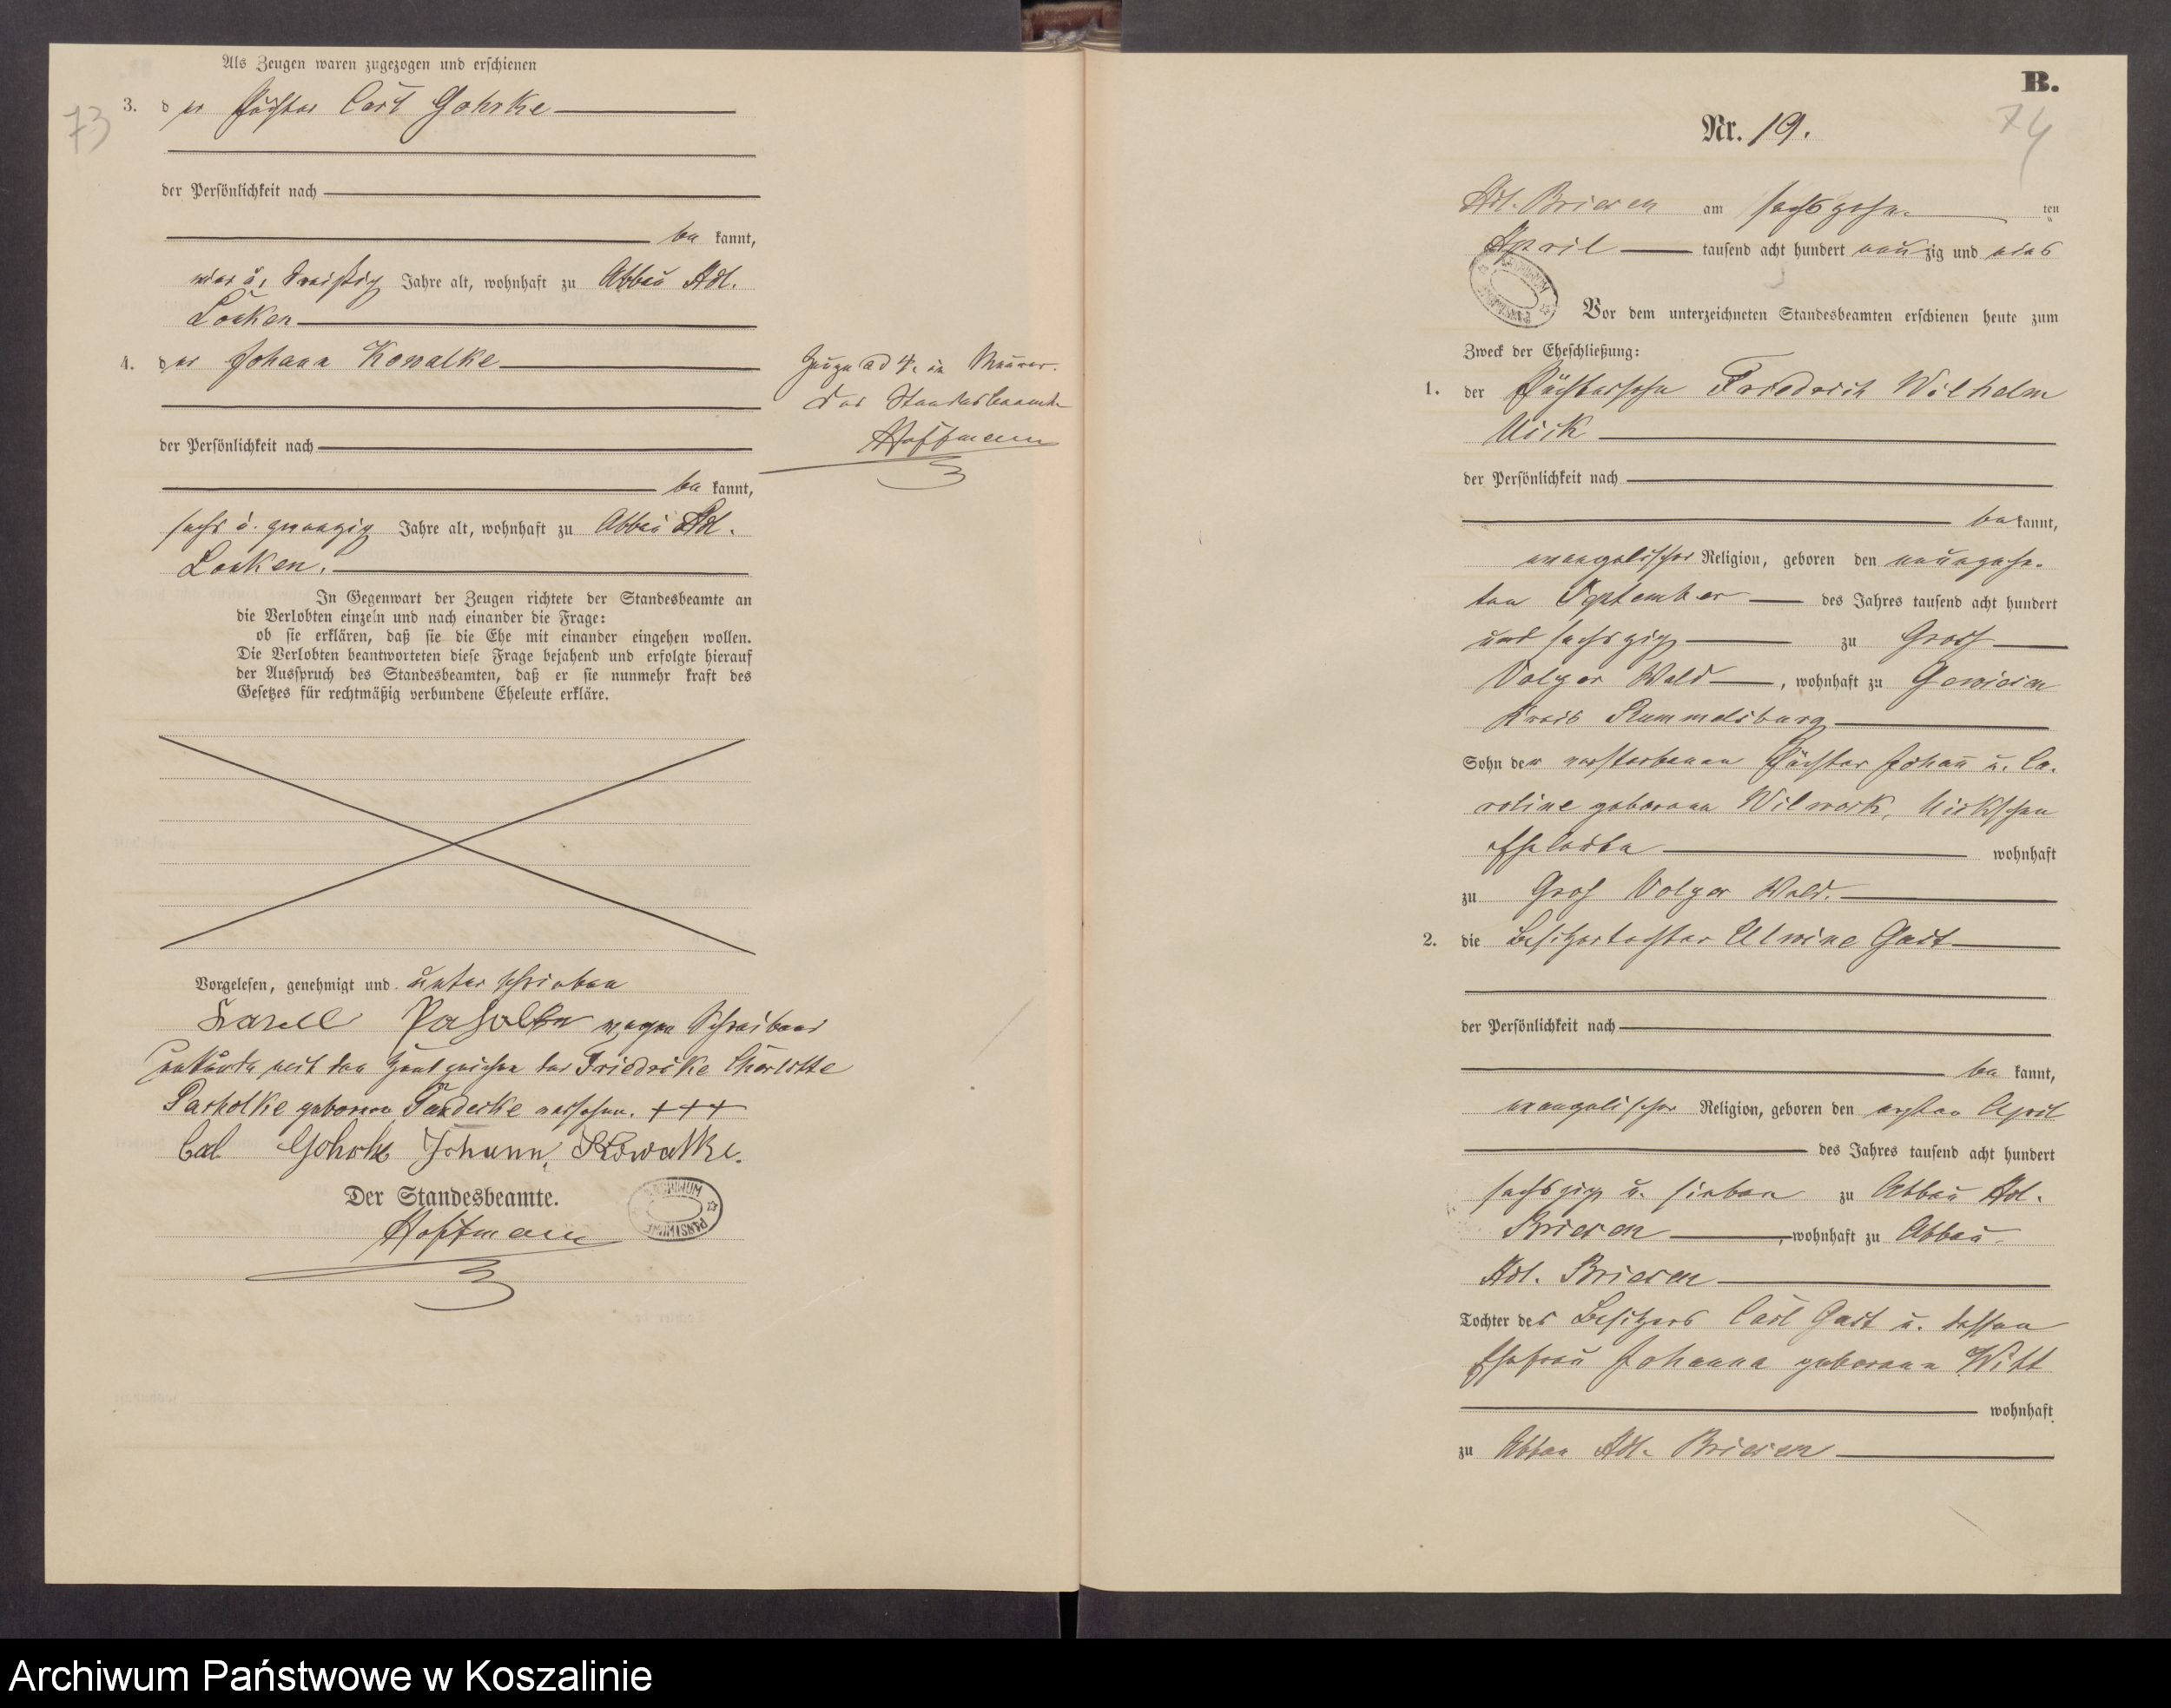 Als Zeugen waren zugezogen und erschienen
73
3. der Pächter Carl Gohrke
der Persönlichkeit nach
be kannt,
vier u. dreißig Jahre alt, wohnhaft zu Abbau Adl.
Looken
4. der Johann Kowalke
der Persönlichkeit nach
be kannt,
sechs u. zwanzig Jahre alt, wohnhaft zu Abbau Adl.
Looken.
Zeuge ad 4. in Maurer.
Der Standesbeamte
Hoffmann
In Gegenwart der Zeugen richtete der Standesbeamte an
die Verlobten einzeln und nach einander die Frage:
ob sie erklären, daß sie die Ehe mit einander eingehen wollen.
Die Verlobten beantworteten diese Frage bejahend und erfolgte hierauf
der Ausspruch des Standesbeamten, daß er sie nunmehr kraft des
Gesetzes für rechtmäßig verbundene Eheleute erkläre.
Vorgelesen, genehmigt und unterschrieben
wegen Schreibens
unkunde mit den Handzeichen der Friedrike Charlotte
Pasholke geborene versehen. +++
Gohrke Johann, Kowalke.
Der Standesbeamte.
Hoffmann
ARCHIWUM PAŃSTWOWE
B.
74
Nr. 19.
Adl. Briesen am sechszehn ten
April tausend acht hundert neunzig und eins
Vor dem unterzeichneten Standesbeamten erschienen heute zum
Zweck der Eheschließung:
1. der Pächtersohn Friedrich Wilhelm
Uick
der Persönlichkeit nach
be kannt,
evangelischer Religion, geboren den neunzehn
ten September des Jahres tausend acht hundert
und sechszig zu Gross
Volzer Wald, wohnhaft zu Gewiesen
Kreis Rummelsburg
Sohn der verstorbenen Pächter Johann u. Ca
roline geborene Wilwock, Uickschen
Eheleute wohnhaft
zu Groß Volzer Wald.
2. die Besitzertochter Alwine Gast
der Persönlichkeit nach
be kannt,
evangelischer Religion, geboren den ersten April
des Jahres tausend acht hundert
sechszig u. sieben zu Abbau Adl.
Briesen, wohnhaft zu Abbau
Adl. Briesen
Tochter des Besitzers Carl Gast u. dessen
Ehefrau Johanna geborene Witt
wohnhaft
zu Abbau Adl. Briesen
Archiwum Państwowe w Koszalinie